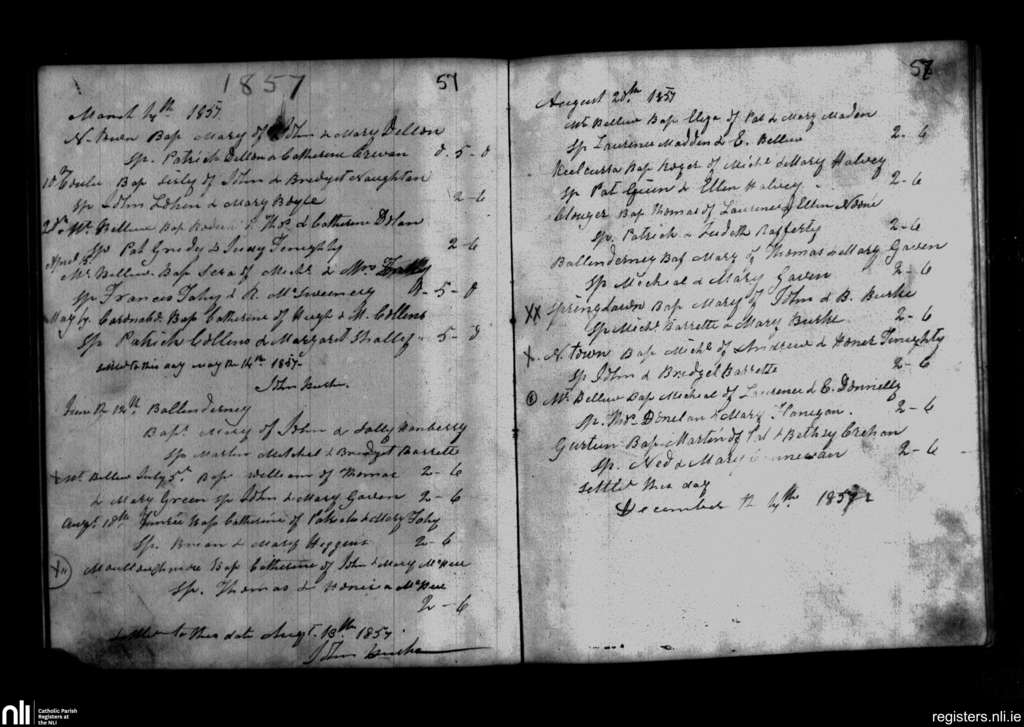 1857
57
March 4th 1857
N. Town Bap Mary of John & Mary Dillon
Sp. Patrick Dillon & Catherine 0-5-0
10th Bap Sisly of John & Bredget Naughton
Sp John & Mary Boyle 2-6
20th Mt Bellew Bap of Thos & Catherine Dolan
Sp Pat Grady & Finighty 2-6
April 15
Mt Bellew Bap of Michl & Mrs
Sp Francis Fahy & R. McSweeney 5-0
May 6 Bap Catherine of Hugh & M. Collens
Sp Patrick Collens & Margaret 5-0
settled to this day May the 14th 1857
John Burke
June the 12th Ballenderney
Bapt Mary of John & Sally
Sp Martin Mitchel & Bredget Barrette
x Mt Bellew July 5th Bap William of Thomas 2-6
& Mary Green Sp John & Mary Gaven 2-6
Augt 10th Bap Catherine of Patrick & Mary Fahy
Sp. Brian & Mary Higgens 2-6
Bap Catherine of John & Mary
Sp. Thomas &
2-6
settled to this date Augt. 13th 1857
John Burke
57
August 20th 1857
Mt Bellew Bap Eliza of Pat & Mary Maden
Sp Laurence Madden & E. Bellew 2-6
Bap Roger of Michl & Mary Halvey
Sp Pat Green & Ellen Halvey 2-6
Clouger Bap Thomas of Laurence & Ellen Noone
Sp. Patrick & Judeth Rafferty 2-6
Ballenderney Bap Mary of Thomas & Mary Gaven
Sp Micheal & Mary Gaven 2-6
XX Springlawn Bap Mary of John & B. Burke
Sp Michl Barrette & Mary Burke 2-6
X. N. town Bap Michl of Andrew & Honer Finighty
Sp John & Bredget Barrette 2-6
Mt Bellew Bap Micheal of Laurence & C. Donnelly
Sp. Thos Donelan & Mary Flanegan. 2-6
Gurteen Bap Martin of Pat & Bethsy Crehan
Sp. Ned & Mary 2-6
settled this day
December the 4th 1857
nli
Catholic Parish
Registers at
the NLI
registers.nli.ie